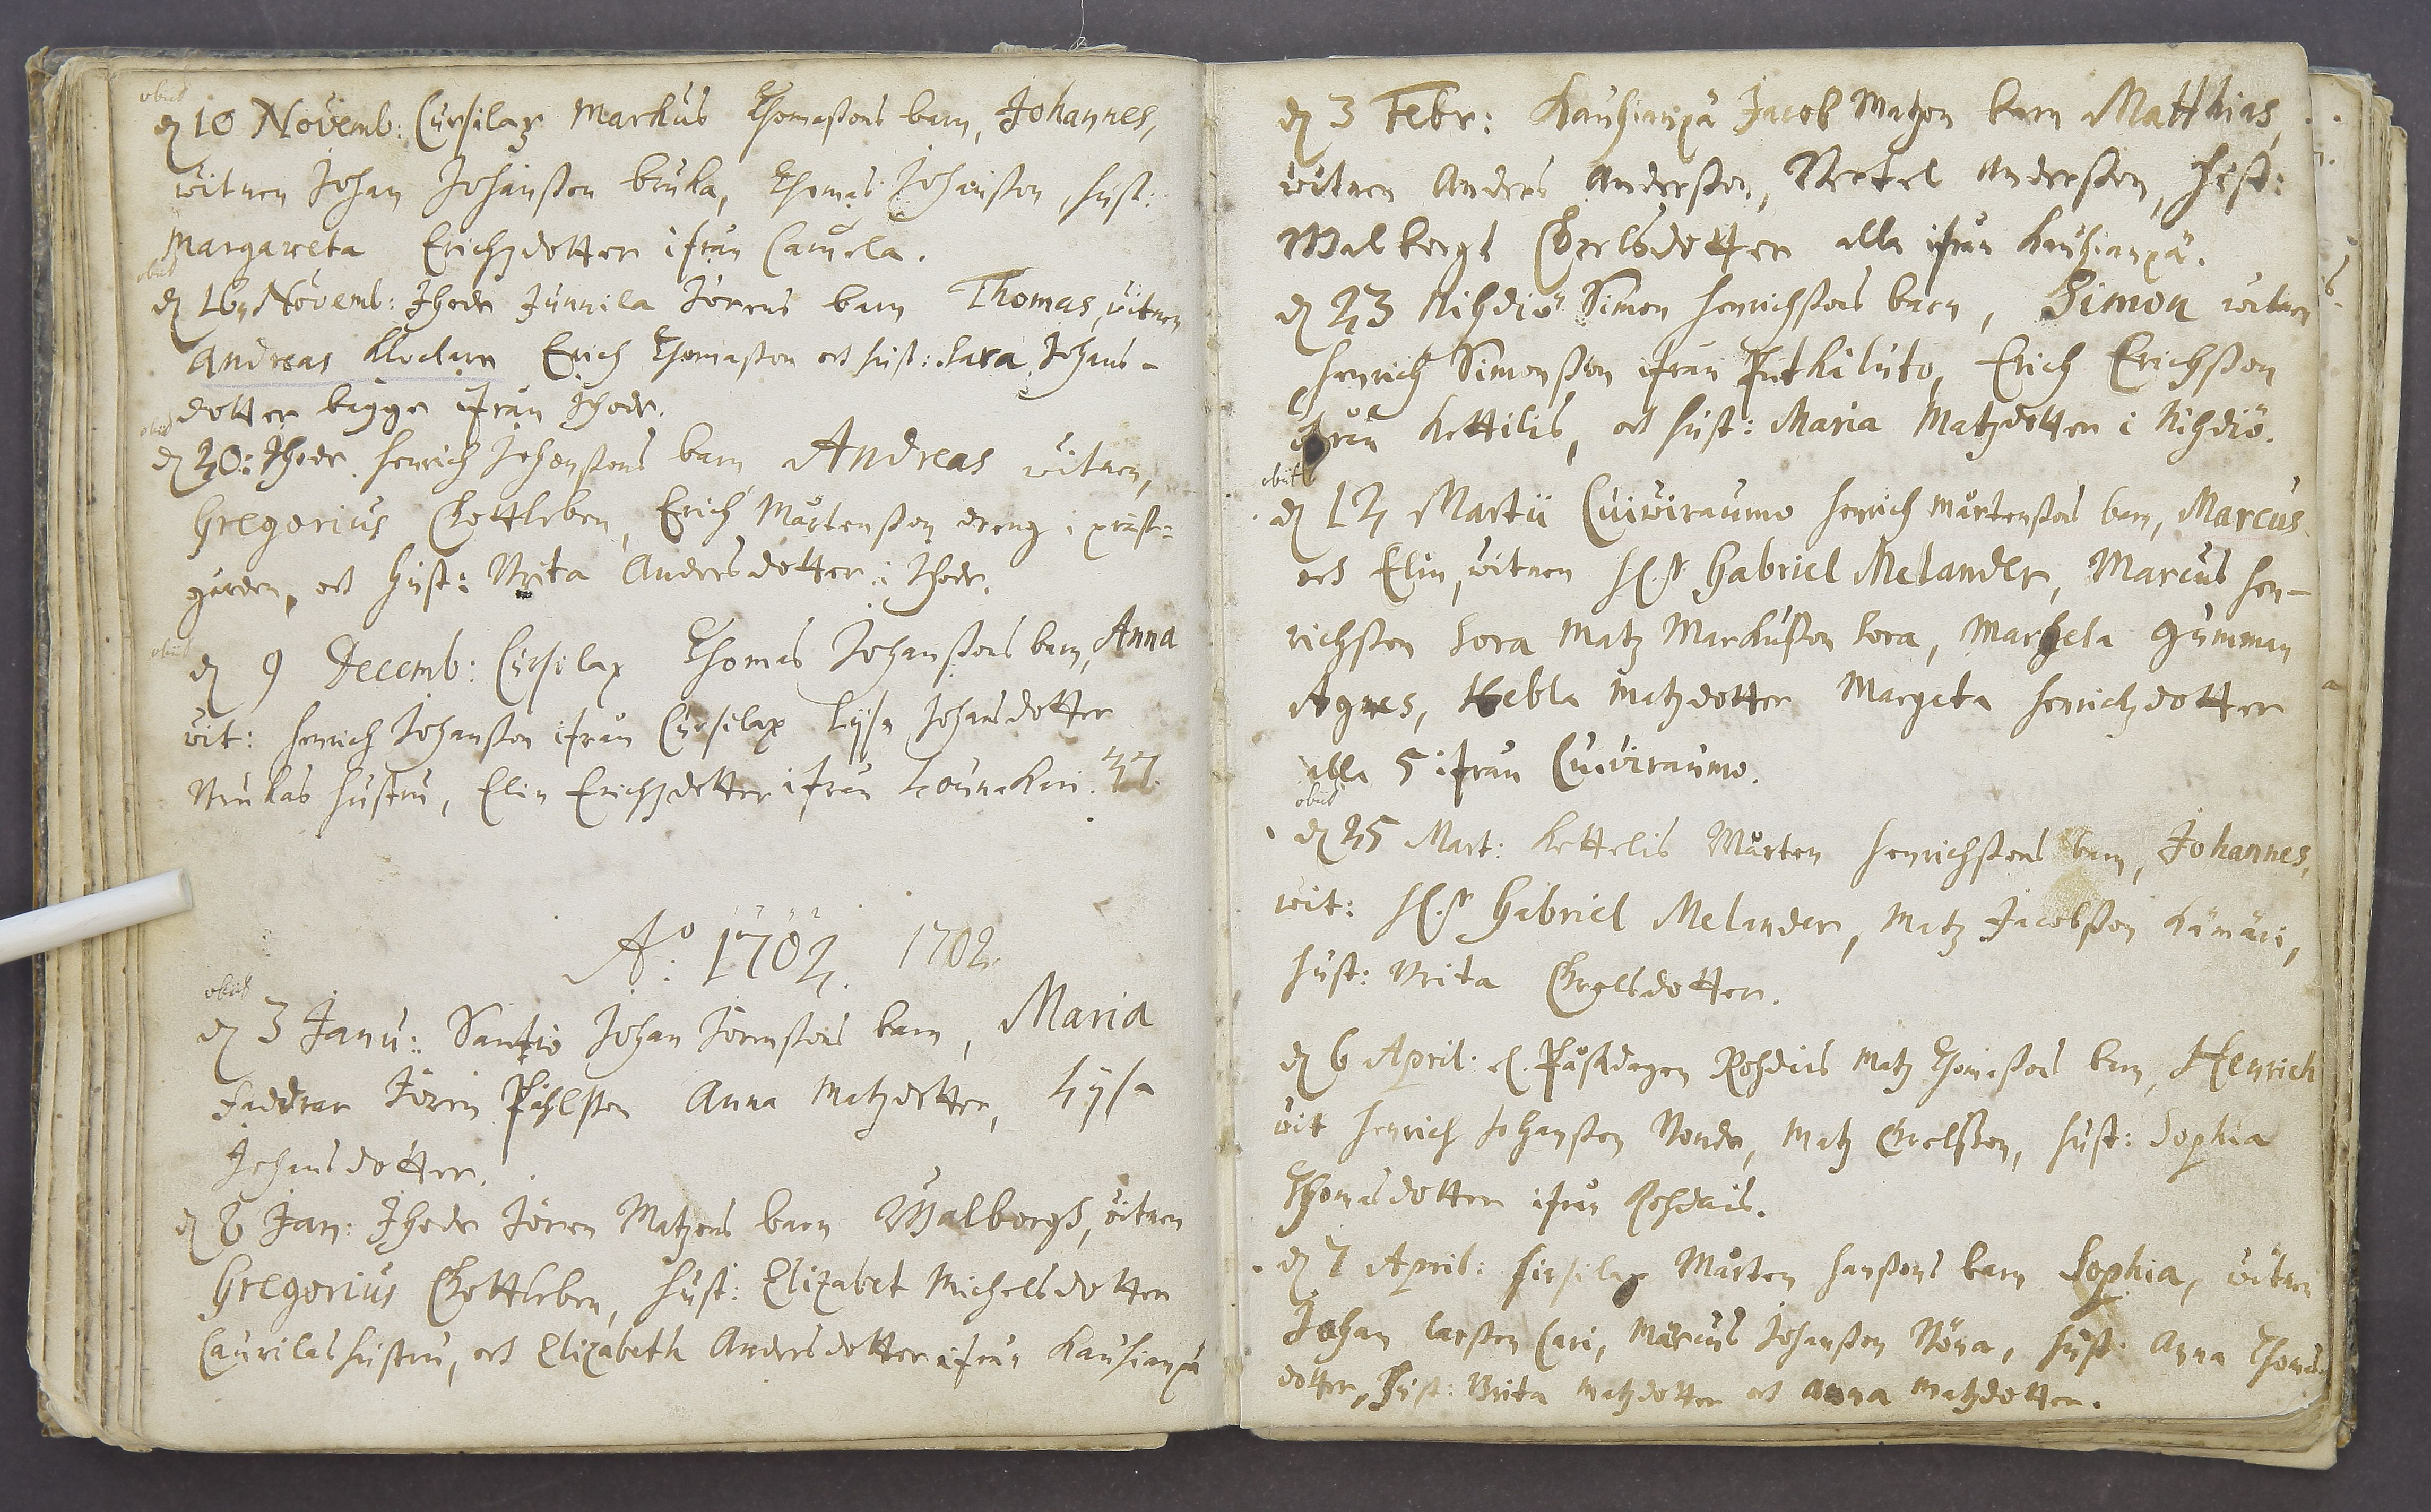 obiit
d 10 Novemb: Cursilax Markus Thomaßons barn, Johannes,
witnen Johan Johanßon bruka, Thomas Johanßon, hust:
Margareta Erichzdotter ifrån Camela.
obiit
d 16 Novemb: Ihode Junnila Jörens barn Thomas, witnen
Andreas Klockare Erich Thomaßon och hust: Sara Johans-
dotter bägge ifrån Ihode.
obiit
d 20: Ihode Henrich Johanßons barn Andreas witnen,
Gregorius Gottleben, Erich Mårtenßon dreng i präst-
gården, och hust: Brita Andersdotter i Ihode.
obiit
d 9 Decemb: Cursilax Thomas Johanßons barn, Anna
wit: Henrich Johanßon ifrån Cursilax Lysa Johansdotter
Brukas hustru, Elin Erichzdotter ifrån Lounakari. 27.
A:o 1702. 1702.
obiit
d 3 Janu: Santio Johan Jörenßons barn, Maria
faddrar Jören Påhlßon Anna Matzdotter, Lysa
Johansdotter.
d 6 Jan: Ihode Jören Matzons barn Walborgh, witnen
Gregorius Gottleben, Hust: Elizabet Michelsdotter
Caurilas hustru, och Elizabeth Andersdotter ifrån Kauhianpä
d 3 Febr: Kauhianpä Jacob Matzon barn Matthias,
witnen Anders Anderßon, Bertel Anderßon, Hust:
Walborgh Eerlsdotter alla ifrån Kauhianpä.
d 23 Nihdiö Simon Henrichßons barn, Simon witnen
Henrich Simonßon ifrån Pitkäluto, Erich Erichßon
ifrån Kettilis, och Hust: Maria Matzdotter i Nihdiö.
obiit
d 12 Martii Cuiviraumo Henrich Mårtenßons barn, Marcus
och Elin, witnen H. Gabriel Melander, Marcus Hen-
richßon Sora Matz Markußon Sora, Margeta gumman
Agnes, Kebla Matzdotter Margeta Henrichzdotter
alla 5 ifrån Cuiviraumo.
obiit
d 25 Mart: Kettelis Mårten Henrichßons barn, Johannes,
wit: H. Gabriel Melander, Matz Jacobßon Kämäri,
Hust: Brita Grelsdotter.
d 6 April. Påskdagen Rohdais Matz Thomaßons barn, Henrich
wit Henrich Johanßon Bonde, Matz Grelßon, Hust: Sophia
Thomasdotter ifrån Rohdais.
d 7 April: Cursilax Mårten Hanßons barn Sophia, witnen
Johan Larßon Cari, Marcus Johanßon Röna, Hust: Anna Thomas
dotter, Hust: Brita Matzdotter och Anna Matzdotter.